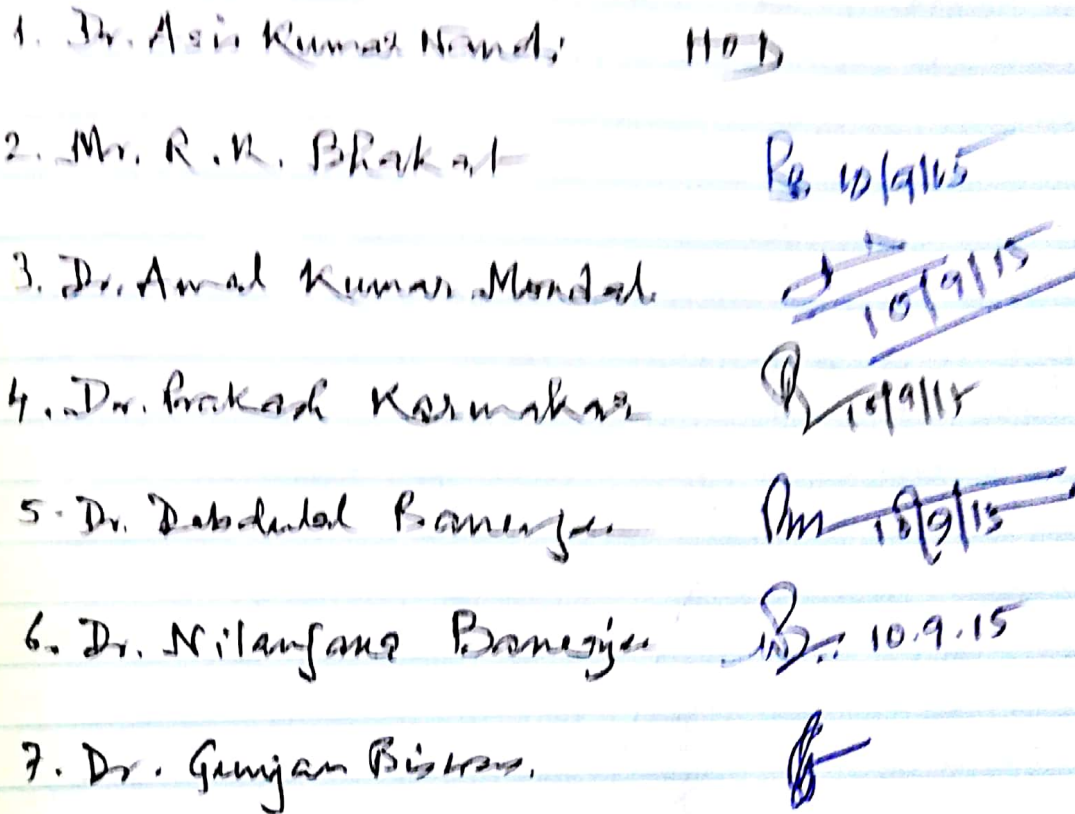 1. Dr. Asis Kumar Nandi HOD
2. Mr. R.K. Bhakat 10/9/15
3. Dr. Amal Kumar Mondal 10/9/15
4. Dr. Prakash Karmakar 10/9/15
5. Dr. Debdulal Banerjee 10/9/15
6. Dr. Nilanjana Banerjee 10.9.15
7. Dr. Gunjan Biswas.